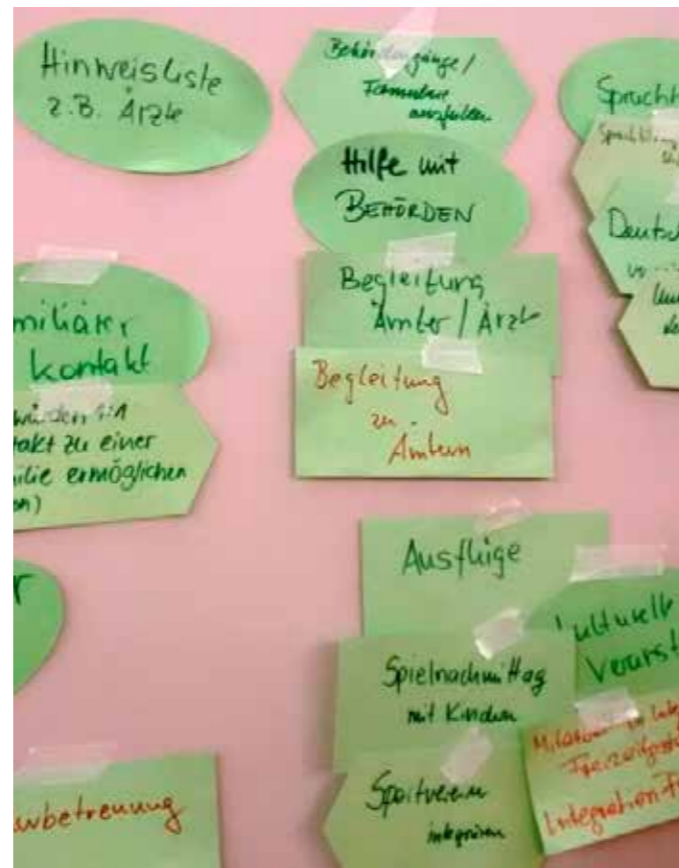 Hinweisliste
z.B. Ärzte
Behördengänge/
Formulare
ausfüllen
Hilfe mit
BEHÖRDEN
Begleitung
Ämter / Ärzte
Begleitung
zu
Ämtern
miliärer
kontakt
takt zu einer
ilie ermöglichen
Ausflüge
Spielnachmittag
mit Kindern
Sportverein
integrieren
kulturell
Veranst
Integration
Deutsch